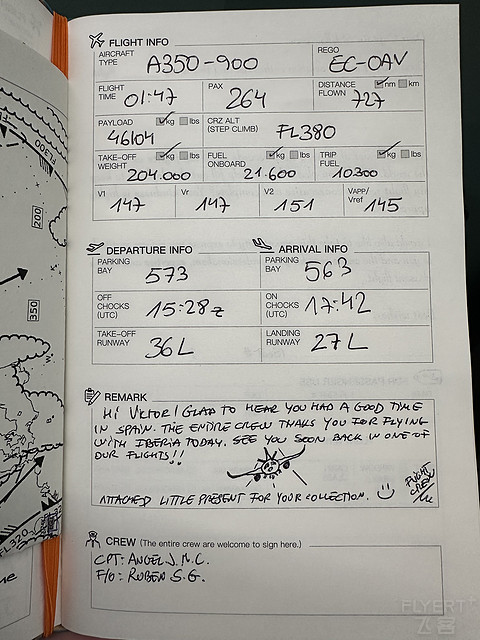 FLIGHT INFO
AIRCRAFT TYPE A350-900
REGO EC-OAV
FLIGHT TIME 01:47
PAX 264
DISTANCE FLOWN nm km 727
PAYLOAD kg lbs 46104
CRZ ALT (STEP CLIMB) FL380
TAKE-OFF WEIGHT kg lbs 204.000
FUEL ONBOARD kg lbs 21.600
TRIP FUEL kg lbs 10300
V1 147
Vr 147
V2 151
VAPP/Vref 145
DEPARTURE INFO
ARRIVAL INFO
PARKING BAY 573
PARKING BAY 563
OFF CHOCKS (UTC) 15:28z
ON CHOCKS (UTC) 17:42
TAKE-OFF RUNWAY 36L
LANDING RUNWAY 27L
REMARK
HI VICTOR! GLAD TO HEAR YOU HAD A GOOD TIME
IN SPAIN. THE ENTIRE CREW THANKS YOU FOR FLYING
WITH IBERIA TODAY. SEE YOU SOON BACK IN ONE OF
OUR FLIGHTS!!
ATTACHED LITTLE PRESENT FOR YOUR COLLECTION.
FLIGHT
CREW
CREW (The entire crew are welcome to sign here.)
CPT: ANGEL J.M.C.
F/O: RUBEN S.G.
FL300
200
350
FL320
FLYERT
飞客